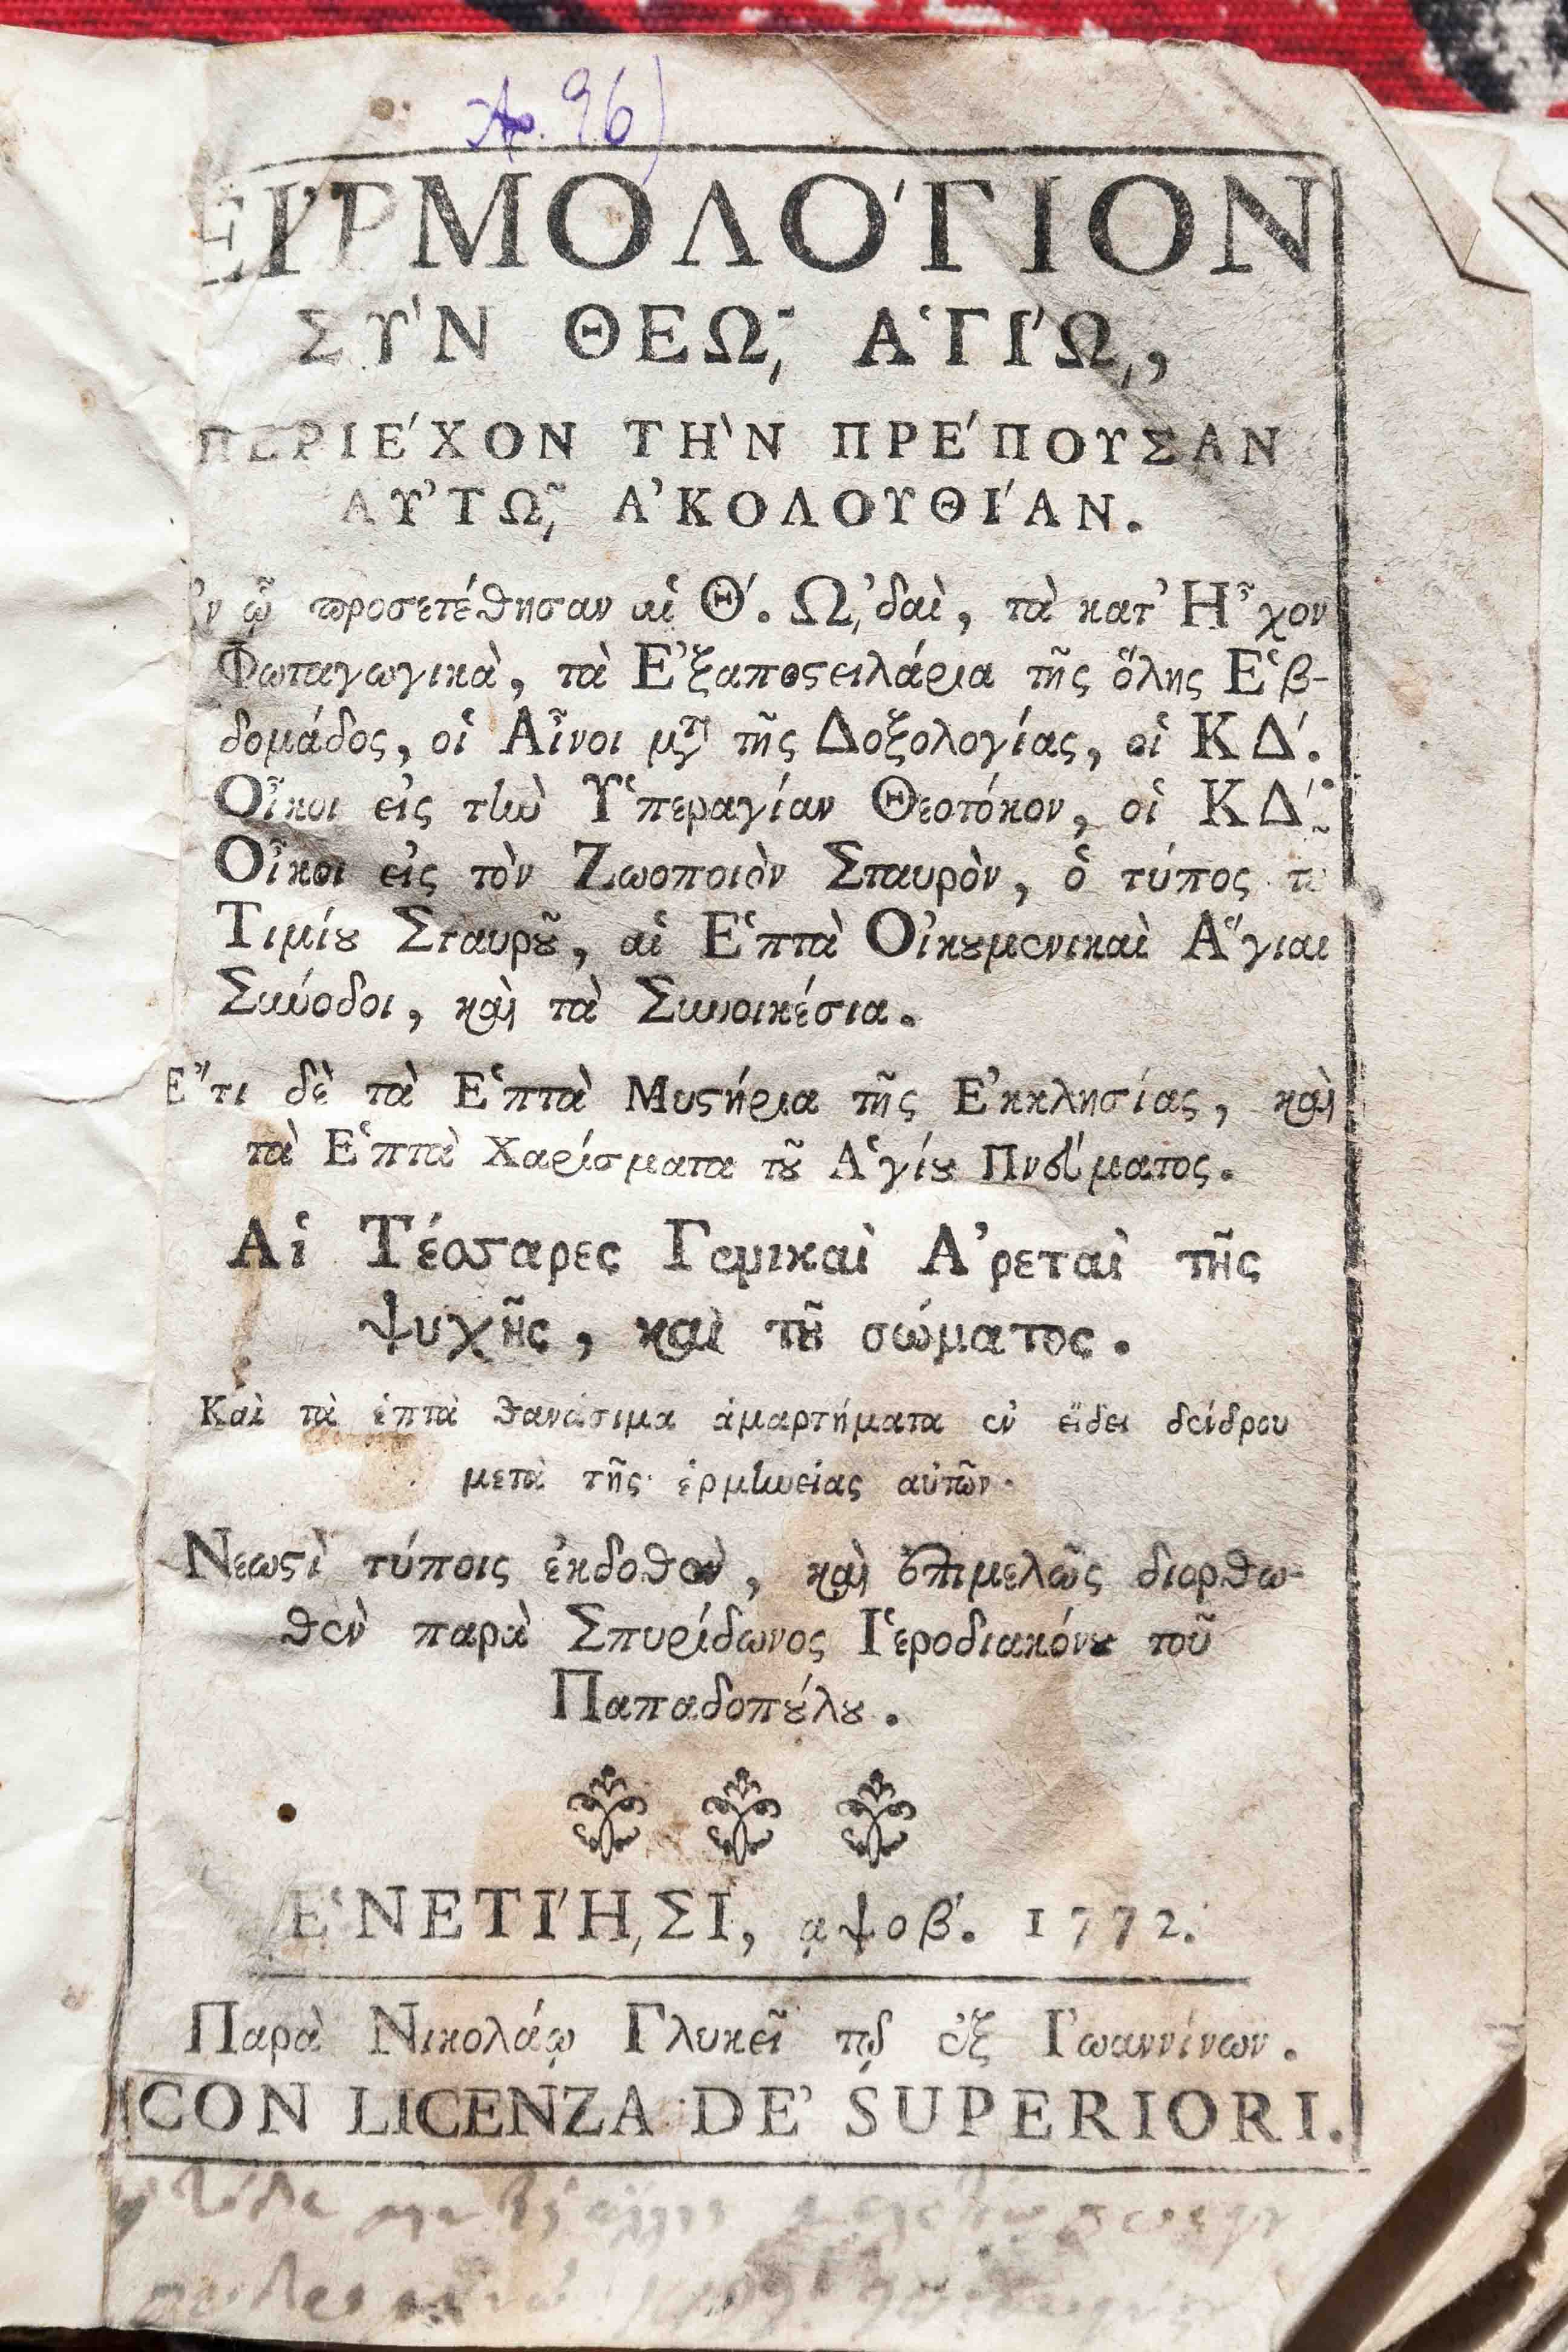 Αρ. 96)
ΕἹΡΜΟΛΌΓΙΟΝ
ΣῪΝ ΘΕῼ͂ ἉΓΊῼ,
ΠΕΡΙΈΧΟΝ ΤῊΝ ΠΡΈΠΟΥΣΑΝ
ΑΥ̓Τῼ͂ ἈΚΟΛΟΥΘΊΑΝ.
ᾧ προσετέθησαν αἱ Θʹ. ᾨδαὶ, τὰ κατ' Ἦχον
Φωταγωγικὰ, τὰ Ἐξαποϛειλάρια τῆς ὅλης Ἑβ-
δομάδος, οἱ Αἶνοι μζτ̀ τῆς Δοξολογίας, οἱ ΚΔʹ.
Οἶκοι εἰς τὴν Ὑπεραγίαν Θεοτόκον, οἱ ΚΔʹ.
Οἶκοι εἰς τὸν Ζωοποιὸν Σταυρὸν, ὁ τύπος τȣ͂
Τιμίȣ Σταυρȣ͂, αἱ Ἑπτὰ Οἰκȣμενικαὶ Ἅγιαι
Σιωύοδοι, καὶ τὰ Συνοικέσια.
Ἔτι δὲ τὰ Ἑπτὰ Μυϛήρια τῆς Ἐκκλησίας, καὶ
τὰ Ἑπτὰ Χαρίσματα τȣ͂ Ἁγίȣ Πνεύματος.
Αἱ Τέσσαρες Γενικαὶ Ἀρεταὶ τῆς
ψυχῆς, καὶ τȣ͂ σώματος.
Καὶ τὰ ἑπτὰ θανάσιμα ἁμαρτήματα ἐν εἴδει δένδρου
μετὰ τῆς ἑρμηνείας αὐτῶν.
Νεωϛὶ τύποις ἐκδοθὲν, καὶ ἐπιμελῶς διορθω-
θὲν παρὰ Σπυρίδωνος Ἱεροδιακόνȣ τοῦ
Παπαδοπȣ́λȣ.
ἘΝΕΤΊῌΣΙ, ͵αψοβʹ. 1772.
Παρὰ Νικολάῳ Γλυκεῖ τῷ ἐξ Ἰωαννίνων.
CON LICENZA DE' SUPERIORI.